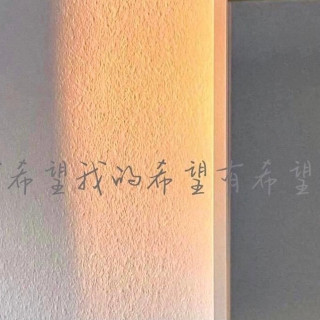 希望我的希望有希望